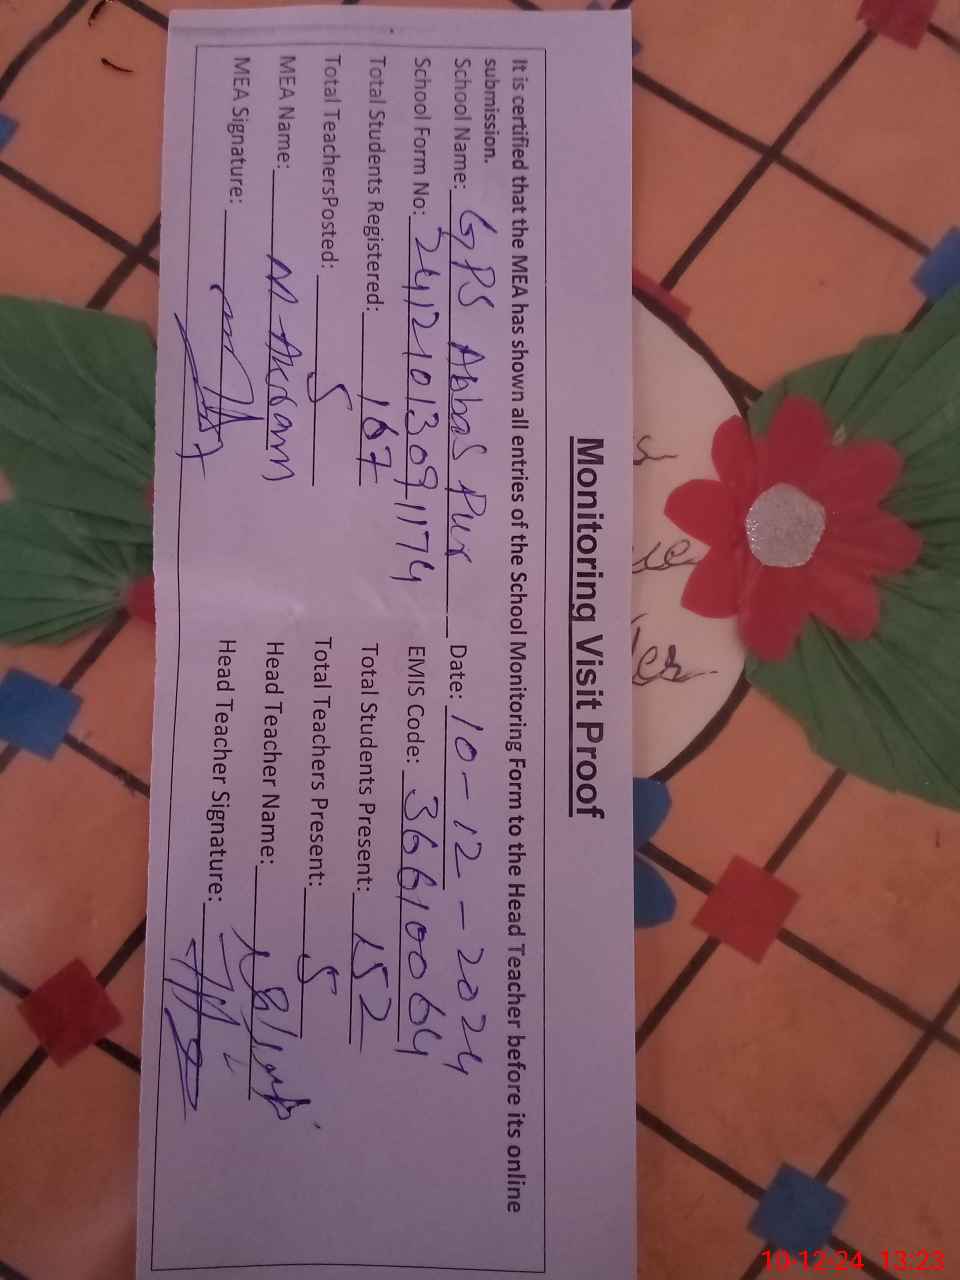 Monitoring Visit Proof
It is certified that the MEA has shown all entries of the School Monitoring Form to the Head Teacher before its online
submission.
School Name: GPS Abbas Pur Date: 10-12-2024
School Form No: 24121013091174 EMIS Code: 36610064
Total Students Registered: 167 Total Students Present: 152
Total TeachersPosted: 5 Total Teachers Present: 5
MEA Name: M Akram Head Teacher Name:
MEA Signature: Head Teacher Signature:
10-12-24 13:23